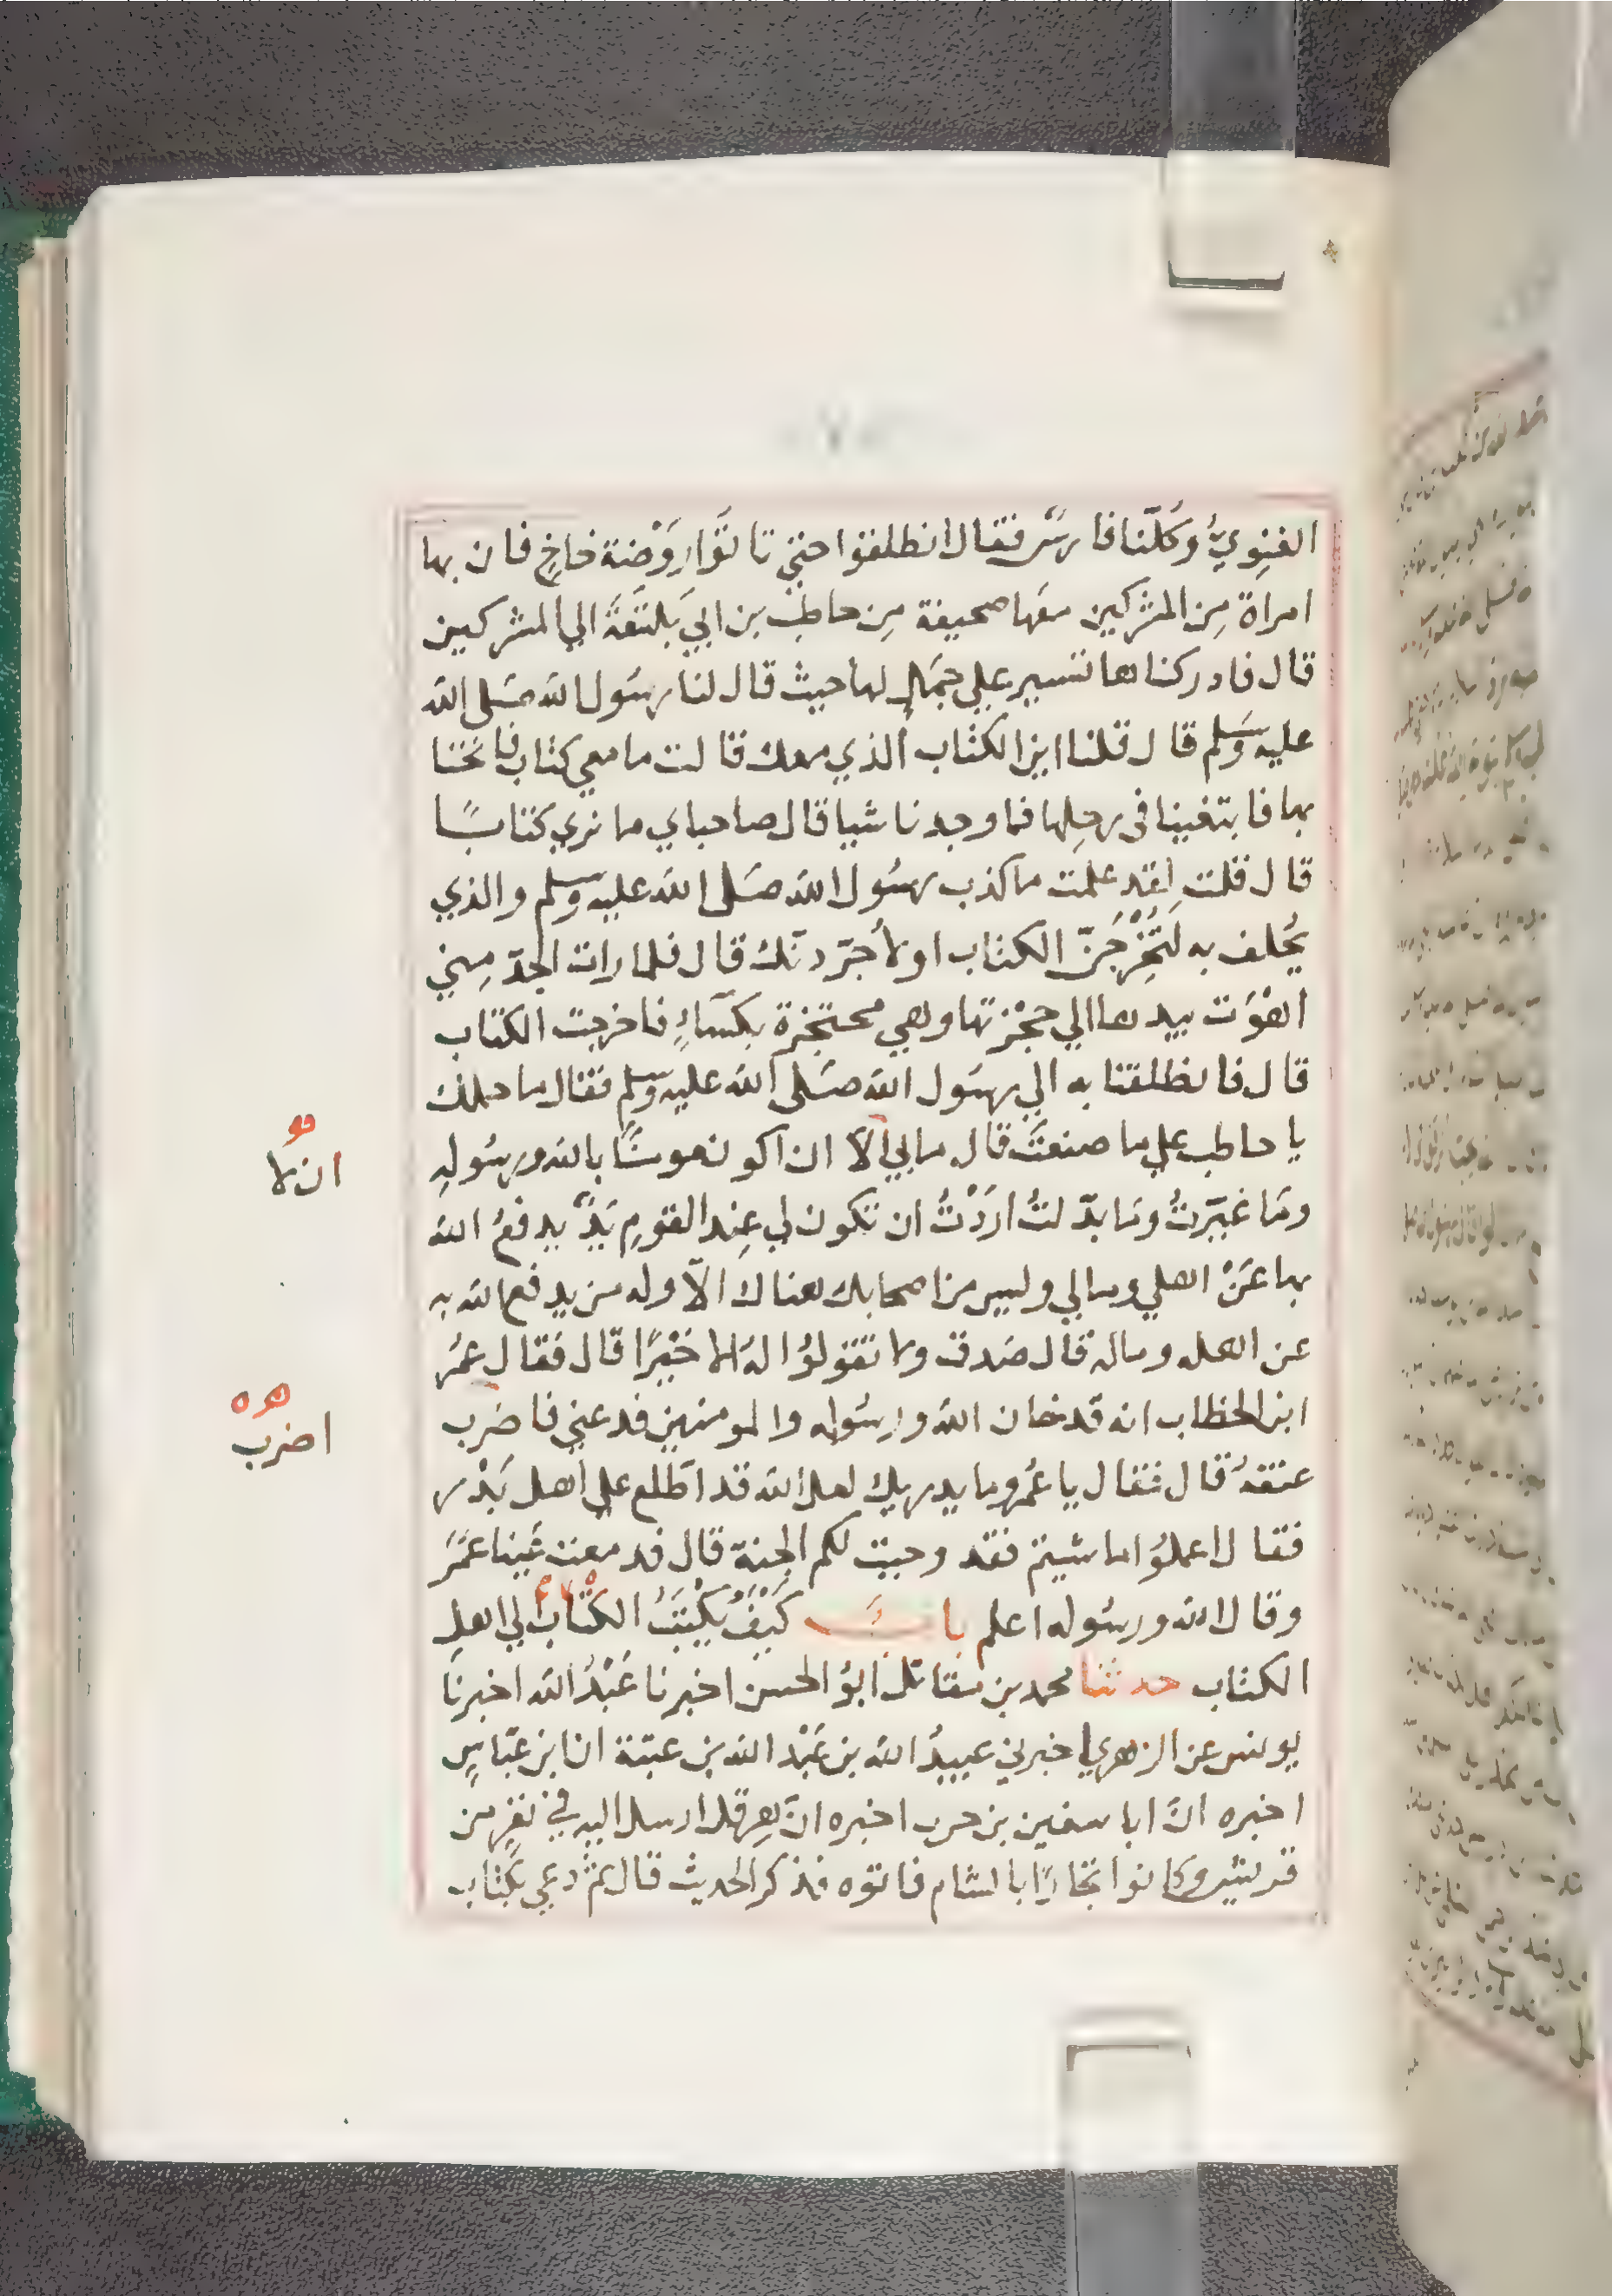 الغنويُّ وكُلّنا فارسٌ فقال انطلقوا حتي تاتَوا رَوْضة خاخٍ فان بها
امراة مِن المشركين معَها صحيفة مِن حاطِب بن ابي بَلتَعَةَ الي المشركين
قال فادركناها تسير علي جمَلٍ لها حيث قال لنا رسُول الله صَلى الله
عليه وسَلم قال قلنا اين الكتاب الذي معك قالت ما معي كتاب فانخنا
بها فابتغينا في رحلِها فما وجدنا شيا قال صاحباي ما نري كتابًا
قال قلت لقد علمت ما كذب رسُول الله صَلى الله عليه وسلم والذي
يُحلف به لَتُخْرِجَنّ الكتاب او لأُجرّدنّك قال فلما رات الجدّ مِني
اهْوَت بيدها الي حجْزتها وهي محتجزة بكسَاءٍ فاخرجت الكتاب
قال فانطلقنا به الي رسُول الله صَلى الله عليه وسلم فقال ما حملك
يا حاطب علي ما صنعتَ قال ما بي الّا ان اكون مومنًا بالله ورسُولهِ
ومَا غيّرتُ ومَا بدّلتُ اردْتُ ان تكون لي عِند القومِ يَدٌ يدفعُ الله
بها عَنْ اهلي ومالي وليس من اصحابك هناك الّا وله من يدفع الله به
عن اهله وماله قال صَدق ولا تقولوُا لهُ الا خَيْرًا قال فقال عمَر
ابن الخطاب انه قد خان الله ورسُوله والمومنين فدعني فاضرب
عنقهُ قال فقال يا عُمر وما يدريك لعل الله قد اطّلع علي اهل بَدْر
فقال اعملوُا ما شيتم فقد وجبت لكم الجنة قال فدمعت عَينا عمَرَ
وقال الله ورسُوله اعلم بابٌ كَيْفَ يُكْتَبُ الكتابُ الي اهلِ
الكتاب حدثنا محمد بن مقاتل ابوُ الحسن اخبرنا عَبْدُ الله اخبرنَا
يونس عن الزهري اخبرني عبيدُ الله بن عَبْد الله بن عتبة ان ابن عبّاسٍ
اخبره انّ ابا سفين بن حرب اخبره انّ هِرقل ارسل اليه في نفرٍ من
قريش وكانوا تجارًا بالشام فاتوه فذكر الحديث قال ثم دعي بكتاب
ان لا
اضرب